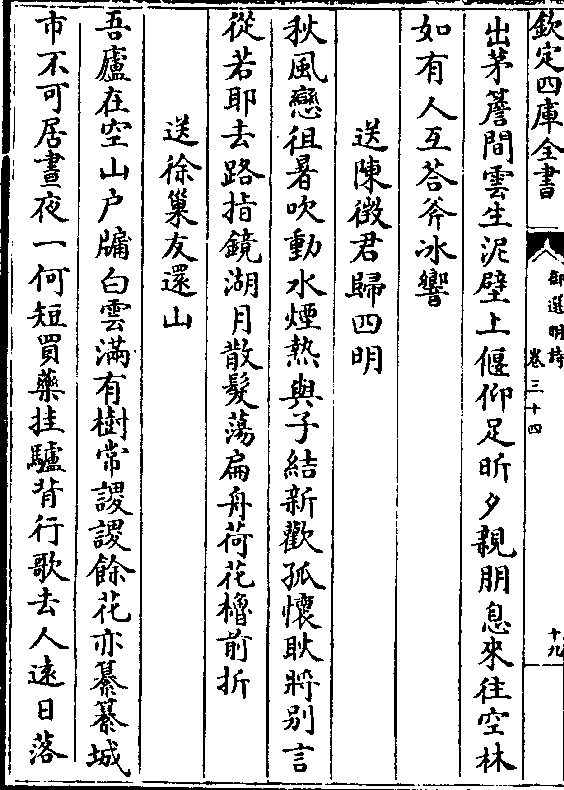 欽定四庫全書
御選明詩
卷三十四
十九
出茅簷間雲生泥壁上偃仰足昕夕親朋息來往空林
如有人互荅斧冰響
送陳徵君歸四明
秋風戀徂暑吹動水煙熱與子結新歡孤懷耿將别言
從若耶去路指鏡湖月散髮蕩扁舟荷花櫓前折
送徐巢友還山
吾廬在空山户牖白雲滿有樹常謖謖餘花亦纂纂城
市不可居晝夜一何短買藥挂驢背行歌去人遠日落